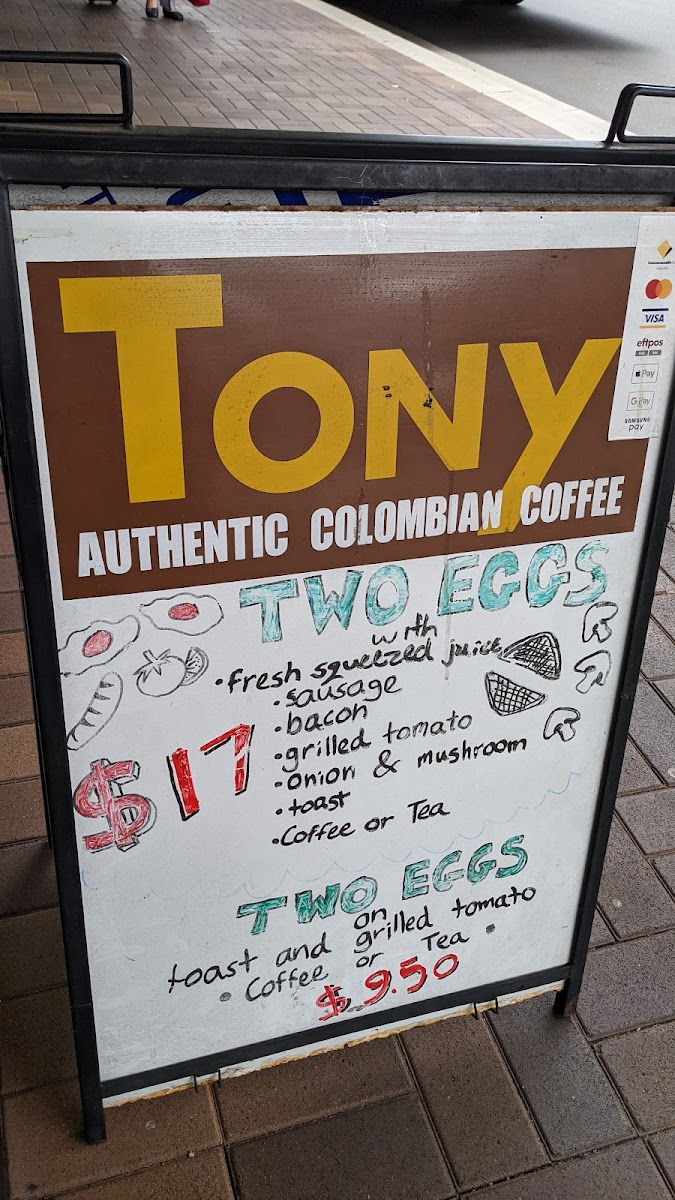 TONY
AUTHENTIC COLOMBIAN COFFEE
VISA
eftpos
Pay
G Pay
SAMSUNG
pay
TWO EGGS
with
• fresh squeezed juice
• sausage
• bacon
• grilled tomato
• onion & mushroom
• toast
• Coffee or Tea
$17
TWO EGGS
on
toast and grilled tomato
• Coffee or Tea •
$9.50